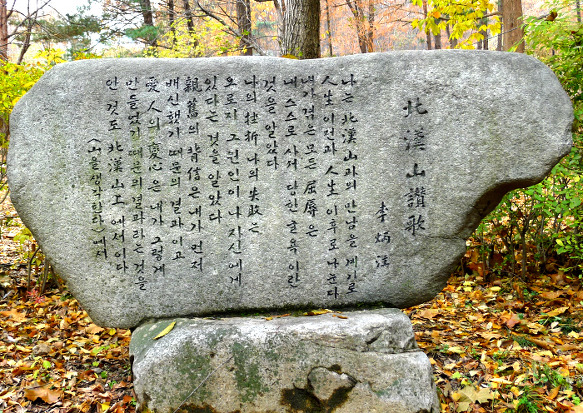 北漢山讚歌
李炳注
나는 北漢山과의 만남을 계기로
人生 이전과 人生 이후로 나눈다
내가 겪은 모든 屈辱은
내 스스로 사서 당한 굴욕이란
것을 알았다
나의 挫折 나의 失敗는
오로지 그 원인이 나 자신에게
있다는 것을 알았다
親舊의 背信은 내가 먼저
배신했기 때문의 결과이고
愛人의 變心은 내가 그렇게
만들었기 때문의 결과라는 것을
안 것도 北漢山上에서이다
〈山을 생각한다〉에서